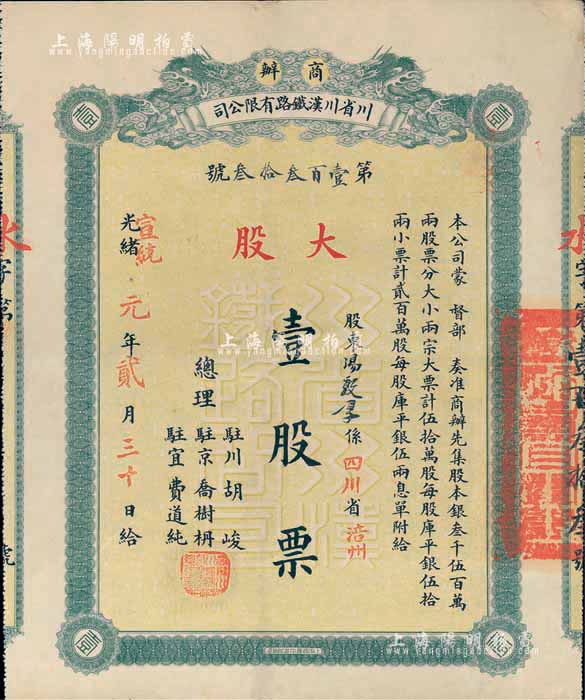 上海陽明拍賣
www.yangmingauction.com
商辦
川省川漢鐵路有限公司
第壹百叁拾叁號
大股
本公司蒙 督部 奏准商辦先集股本銀叁千伍百萬
兩股票分大小兩宗大票計伍拾萬股每股庫平銀伍拾
兩小票計貳百萬股每股庫平銀伍兩息單附給
股東湯 係四川省涪州
壹股票
總理
駐川胡峻
駐京喬樹枬
駐宜費道純
光緒
宣統
元年貳月三十日給
上海陽明拍賣
www.yangmingauction.com
上海陽明拍賣
www.yangmingauction.com